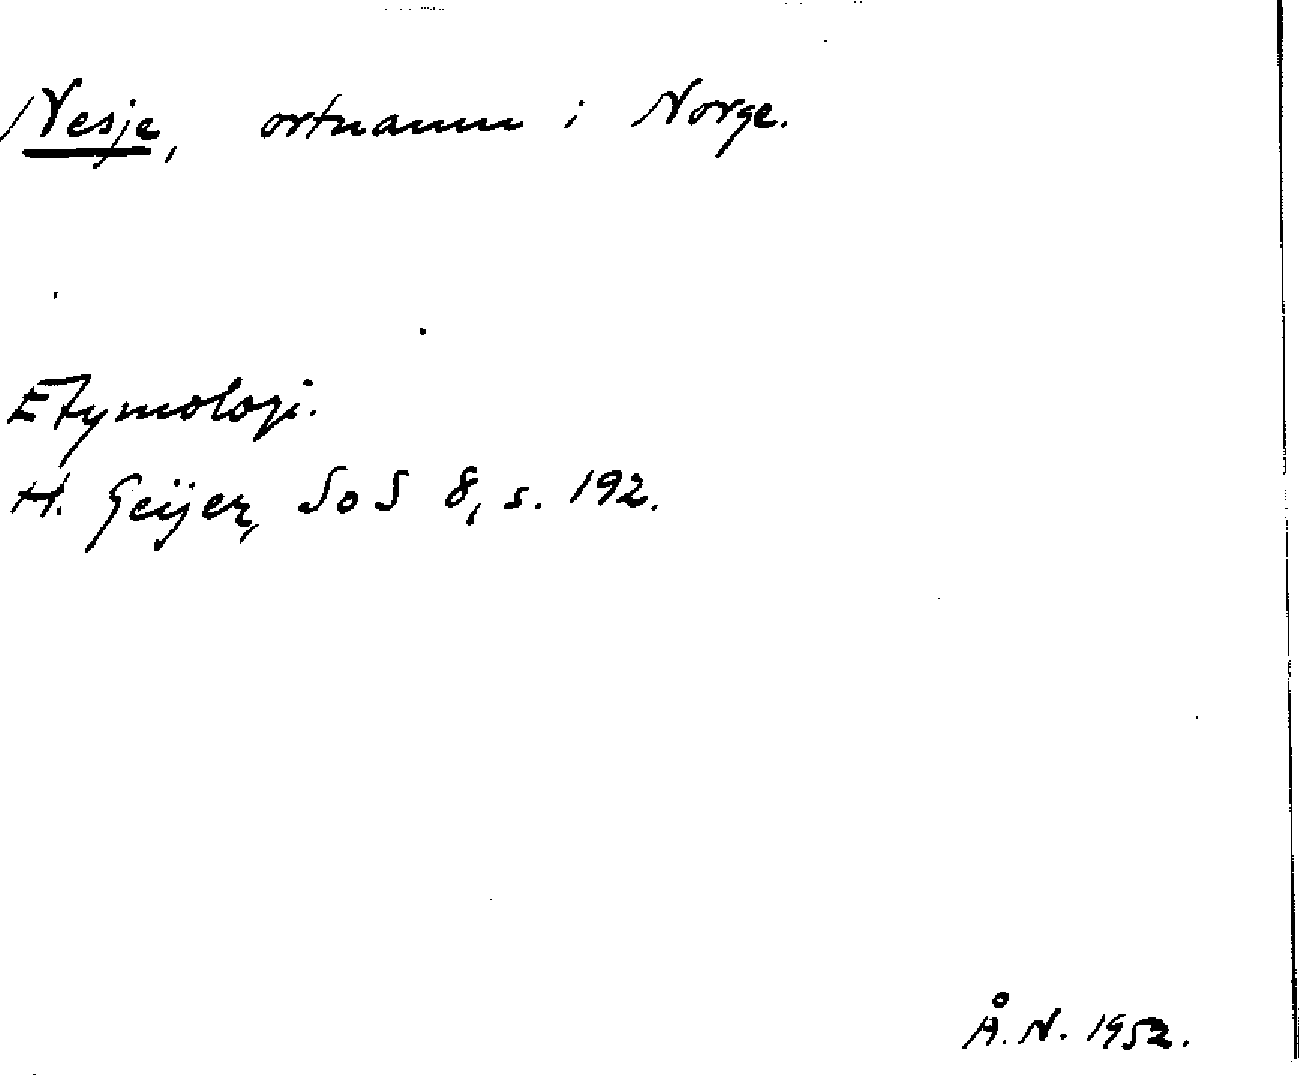 Nesje, ortnamn i Norge.
Etymologi.
H. Geijer, SoS 8, s. 192.
Å.N. 1952.